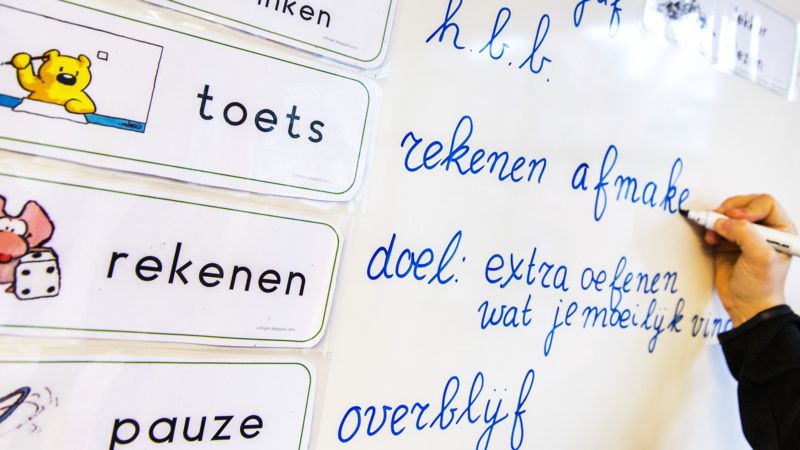 h.b.b.
toets
rekenen afmake
rekenen
doel: extra oefenen
wat je moeilijk vind
pauze
overblijf